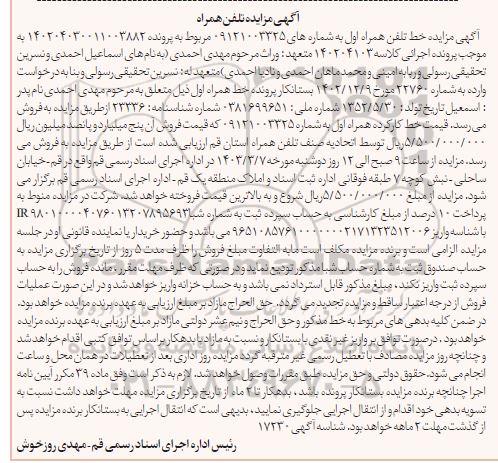 آگهی مزایده تلفن همراه
آگهی مزایده خط تلفن همراه اول به شماره های ۰۹۱۲۱۰۰۳۳۲۵ مربوط به پرونده ۱۴۰۲۰۴۰۳۰۰۱۱۰۰۳۸۸۲ به
موجب پرونده اجرائی کلاسه ۱۴۰۲۰۴۱۰۳ متعهد : وراث مرحوم مهدی احمدی (به نام های اسماعیل احمدی و نسرین
تحقیقی رسولی و ربابه امینی و محمد ماهان احمدی و نادیا احمدی) متعهد له : نسرین تحقیقی رسولی و بنا به درخواست
وارده به شماره ۲۲۷۶۰ مورخ ۱۴۰۲/۱۲/۹ بستانکار پرونده خط همراه اول ذیل متعلق به مرحوم مهدی احمدی نام پدر
: اسمعیل تاریخ تولد : ۱۳۵۲/۵/۳۰ شماره ملی : ۰۳۸۱۶۹۹۶۵۱ شماره شناسنامه : ۲۳۳۳۶ از طریق مزایده به فروش
می رسد. قیمت خط کارکرده همراه اول به شماره ۰۹۱۲۱۰۰۳۳۲۵ که قیمت فروش آن پنج میلیارد و پانصد میلیون ریال
۵/۵۰۰/۰۰۰/۰۰۰ ریال توسط اتحادیه صنف تلفن همراه استان قم ارزیابی شده است از طریق مزایده به فروش می
رسد. مزایده از ساعت ۹ صبح الی ۱۲ روز دوشنبه مورخه ۱۴۰۳/۳/۷ در اداره اجرای اسناد رسمی قم واقع در قم - خیابان
ساحلی - نبش کوچه ۷ طبقه فوقانی اداره ثبت اسناد و املاک منطقه یک قم - اداره اجرای اسناد رسمی قم برگزار می
شود. مزایده از مبلغ ۵/۵۰۰/۰۰۰/۰۰۰ ریال شروع و به بالاترین قیمت فروخته خواهد شد. شرکت در مزایده منوط به
پرداخت ۱۰ درصد از مبلغ کارشناسی به حساب سپرده ثبت به شماره شبا IR ۹۸۰۱۰۰۰۰۴۰۷۶۰۱۳۲۰۷۸۹۵۶۹۳
با شناسه واریز ۹۶۵۱۰۸۵۷۶۱۰۰۰۰۰۰۲۱۷۱۳۲۳۵۱۲۰۰۶ می باشد و حضور خریدار یا نماینده قانونی او در جلسه
مزایده الزامی است و برنده مزایده مکلف است مابه التفاوت مبلغ فروش را ظرف مدت ۵ روز از تاریخ برگزاری مزایده به
حساب صندوق ثبت به شماره حساب شبا مذکور تودیع نماید و در صورتی که ظرف مهلت مقرر، مانده فروش را به حساب
سپرده ثبت واریز نکند، مبلغ مذکور قابل استرداد نمی باشد و به حساب خزانه واریز خواهد شد و در این صورت عملیات
فروش از درجه اعتبار ساقط و مزایده تجدید می گردد. حق الحراج مازاد بر مبلغ ارزیابی به عهده برنده مزایده خواهد بود.
در ضمن کلیه بدهی های مربوط به خط مذکور و حق الحراج و نیم عشر دولتی مازاد بر مبلغ ارزیابی به عهده برنده مزایده
خواهد بود. در صورت توافق بر واریز غیر نقدی با بستانکار و نسبت به مازاد با بدهکار بر اساس توافق کتبی اقدام خواهد شد
و چنانچه روز مزایده مصادف با تعطیل رسمی غیر مترقبه گردد مزایده روز اداری بعد از تعطیلات در همان محل و ساعت
انجام می شود. حقوق دولتی و حق مزایده طبق مقررات وصول خواهد شد. لازم به ذکر است وفق ماده ۳۹ مکرر آیین نامه
اجرا چنانچه برنده مزایده بستانکار پرونده باشد ، بدهکار تا ۲ ماه از تاریخ برگزاری مزایده مهلت خواهد داشت نسبت به
تسویه بدهی خود اقدام و از انتقال اجرایی جلوگیری نمایید، بدیهی است که انتقال اجرایی به بستانکار برنده مزایده پس
از گذشت مهلت ۲ ماهه خواهد بود. شناسه آگهی ۱۷۲۳۰
رئیس اداره اجرای اسناد رسمی قم - مهدی روزخوش